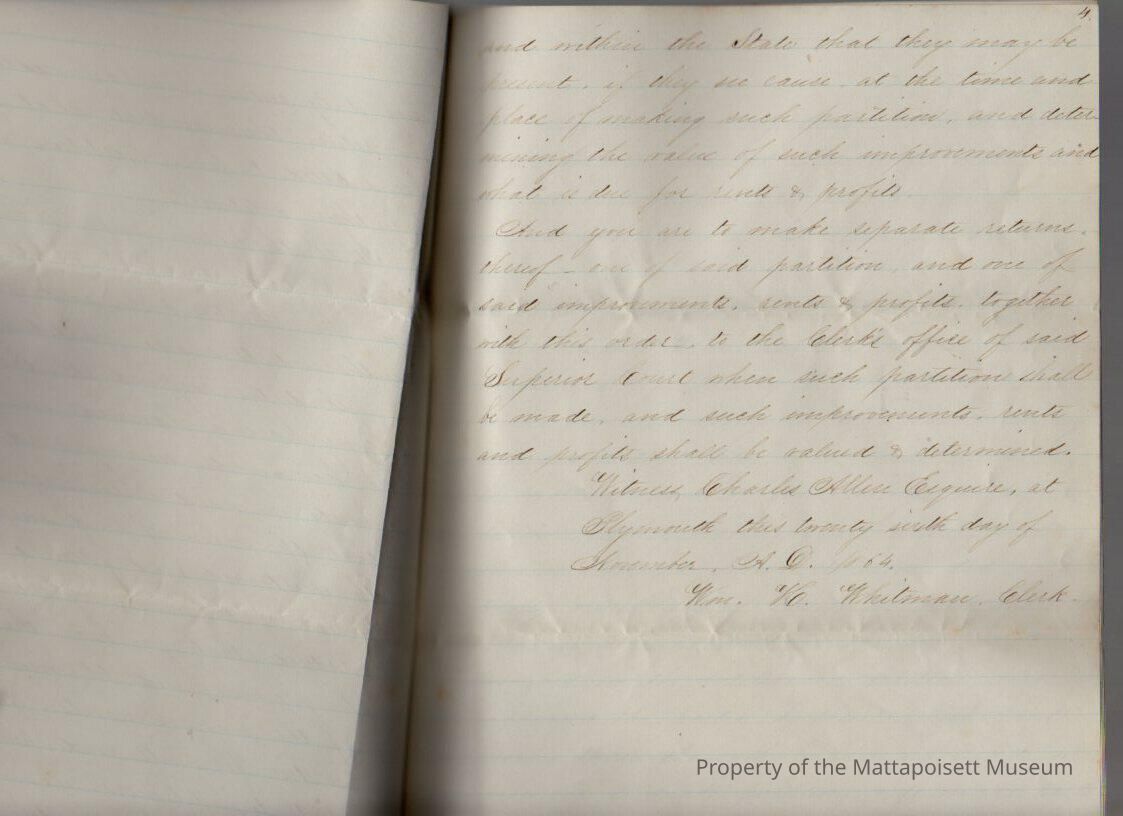 4
and within the State that they may be
present, if they see cause, at the time and
place of making such partition, and deter-
mining the value of such improvements and
what is due for rents & profits
And you are to make separate returns
thereof - one of said partition, and one of
said improvements, rents & profits, together
with this order, to the Clerk's office of said
Superior Court when such partition shall
be made, and such improvements, rents
and profits shall be valued & determined.
Witness, Charles Allen Esquire, at
Plymouth this twenty sixth day of
November, A. D. 1864.
Wm. H. Whitman, Clerk.
Property of the Mattapoisett Museum